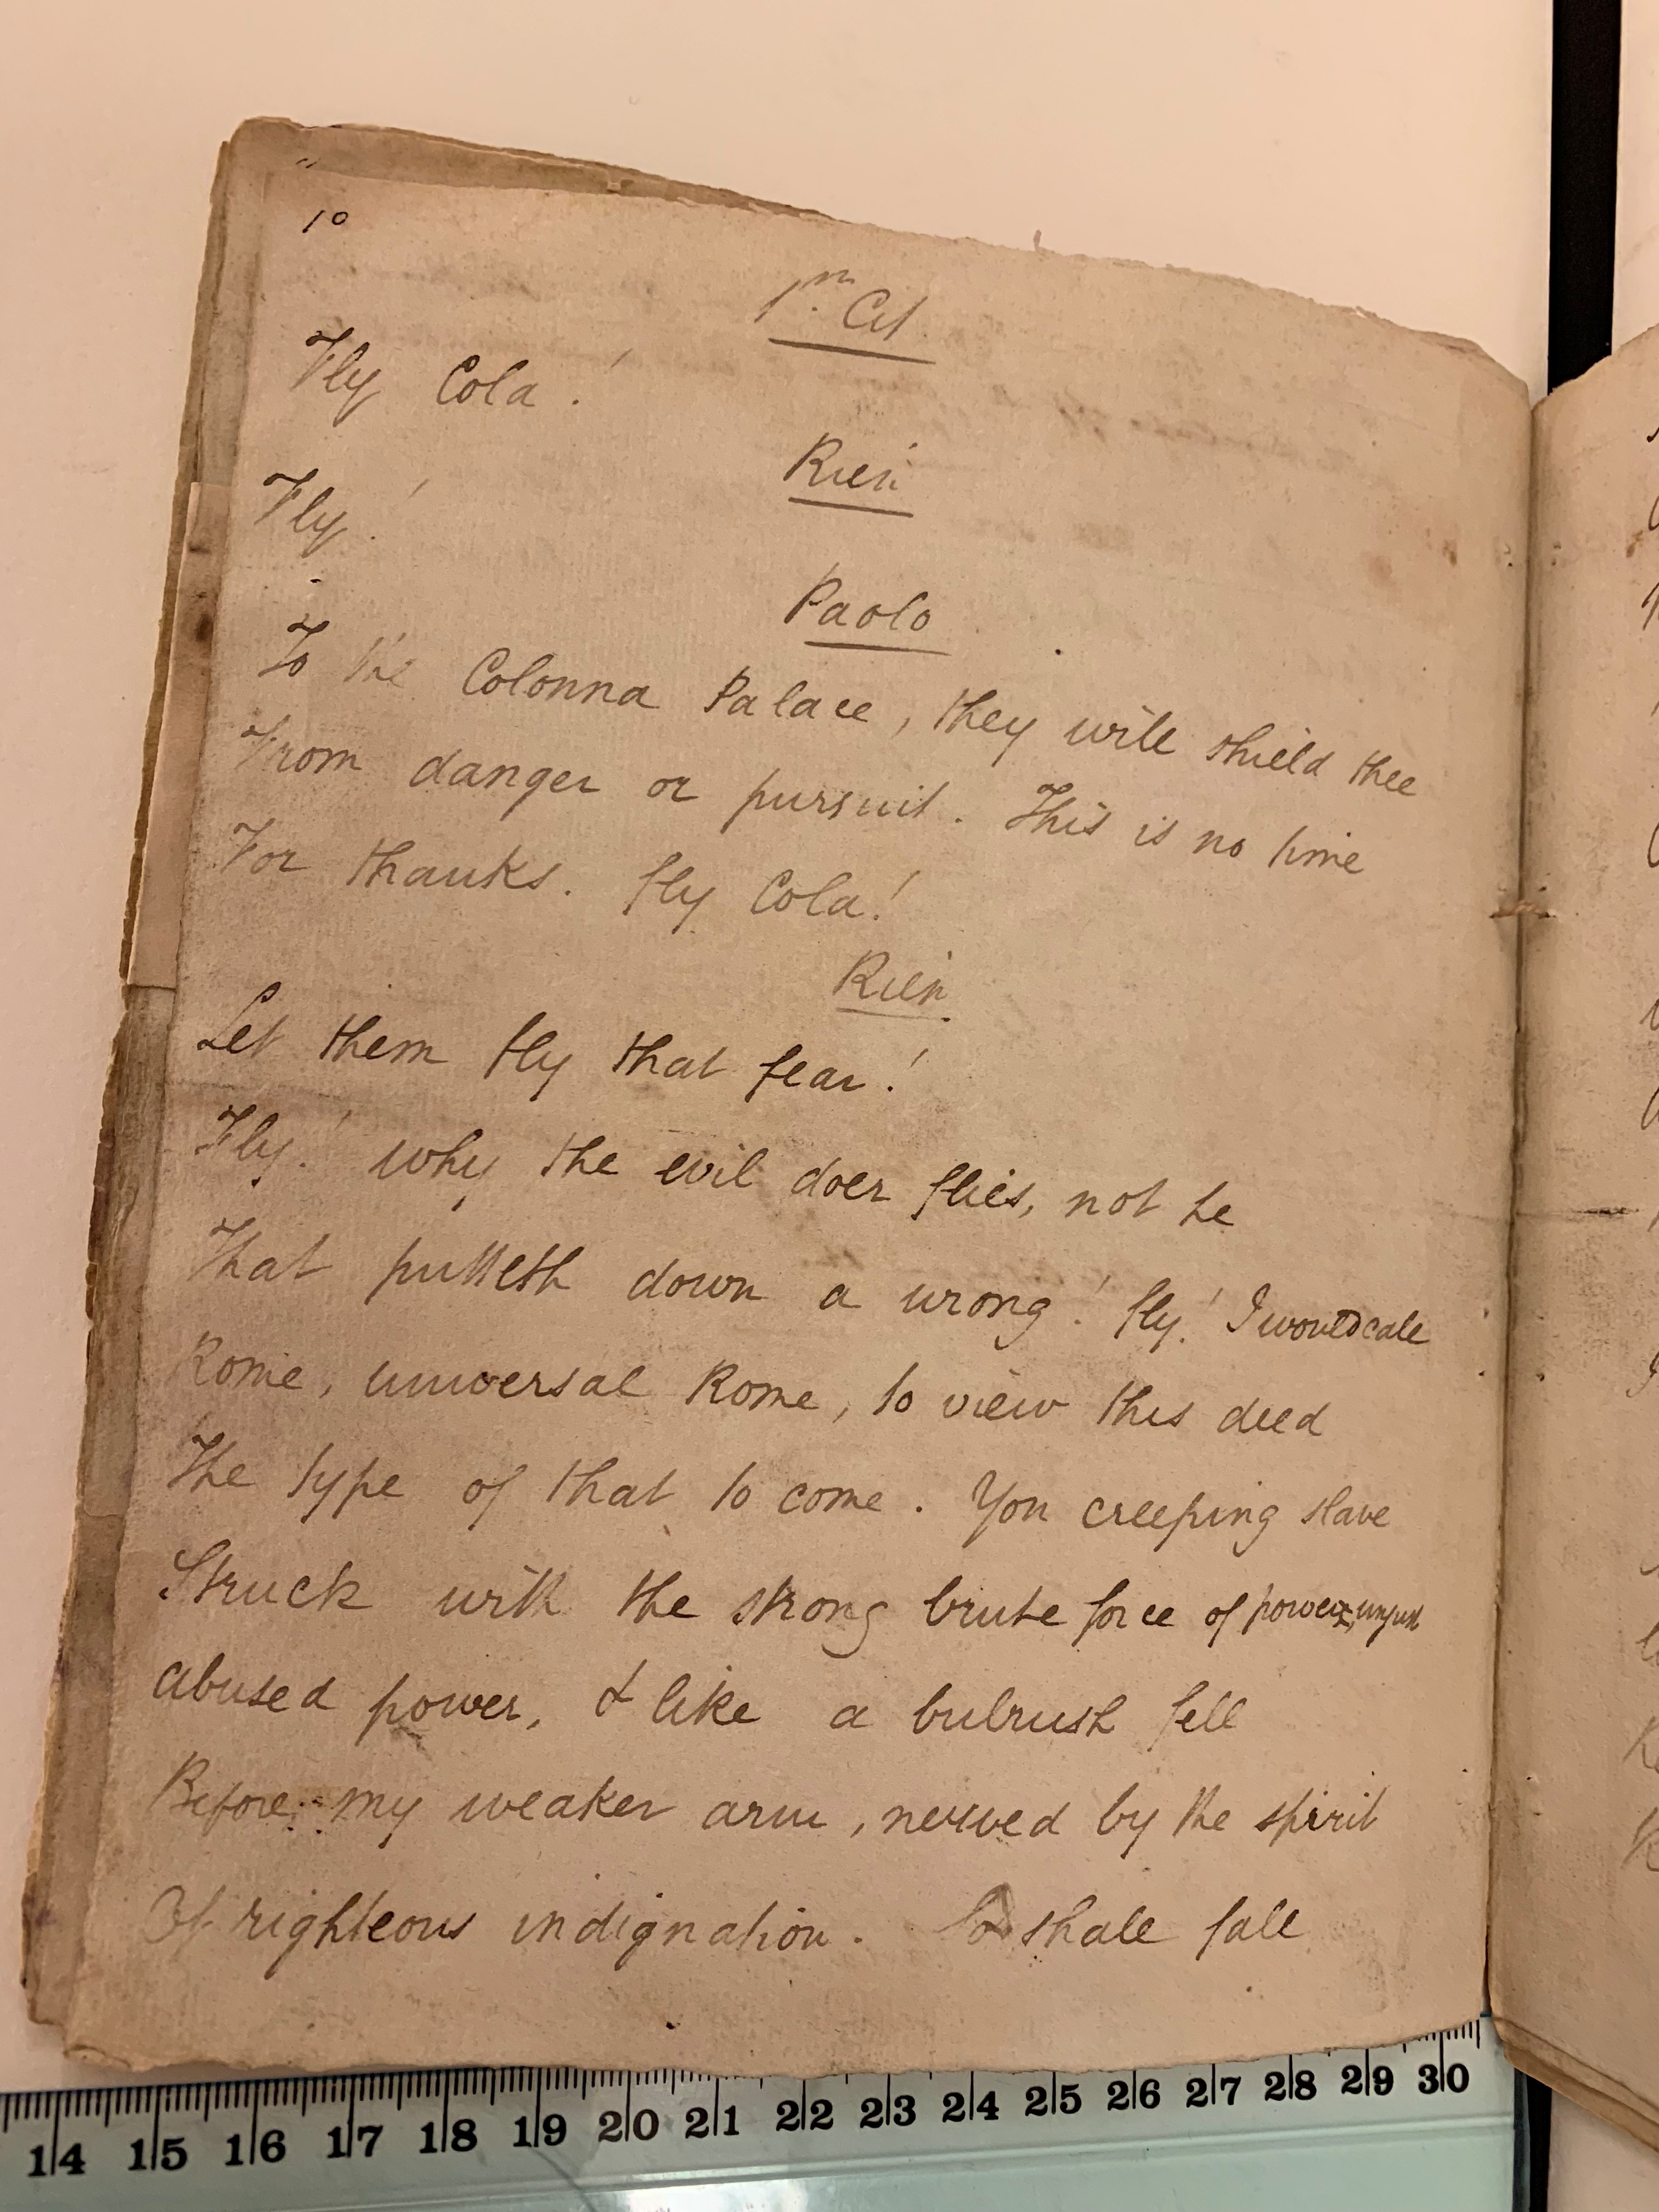 10
1m. Cit.
Fly Cola!
Rien
Fly!
Paolo
To the Colonna Palace, they will shield thee
From danger or pursuit. This is no time
For thanks. fly Cola!
Rien
Let them fly that fear!
Fly! why, the evil doer flies, not he
That putteth down a wrong! fly! I would call
Rome, universal Rome, to view this deed
The type of that to come. Yon creeping slave
Struck with the strong brute force of power, unjust
abused power, & like a bulrush fell
Before my weaker arm, nerved by the spirit
Of righteous indignation. So shall fall
14 15 16 17 18 19 20 21 22 23 24 25 26 27 28 29 30